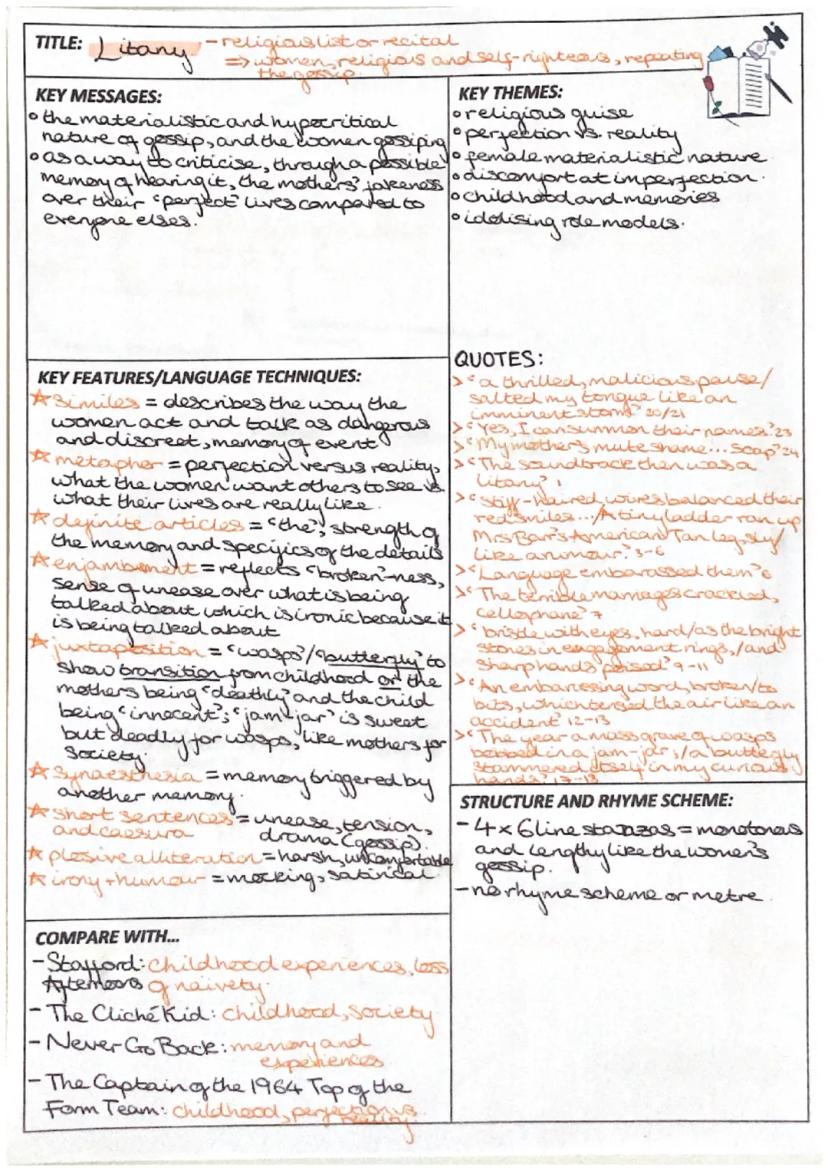 TITLE: Litany - religious list or recital
=> women, religious and self-righteous, repeating
the gossip.
KEY MESSAGES:
• the materialistic and hypocritical
nature of gossip, and the women gossiping
• as a way to criticise, through a possible
memory of hearing it, the mothers'
over their 'perfect' lives compared to
everyone elses.
KEY THEMES:
• religious guise
• perfection vs. reality
• female materialistic nature
• discomfort at imperfection.
• childhood and memories
• idolising role models.
KEY FEATURES/LANGUAGE TECHNIQUES:
☆ similes = describes the way the
women act and talk as dangerous
and discreet, memory of event
☆ metaphor = perfection versus reality,
what the women want others to see vs
what their lives are really like.
☆ definite articles = 'the'; strength of
the memory and specifics of the details
☆ enjambement = reflects 'broken'-ness,
sense of unease over what is being
talked about which is ironic because it
is being talked about
☆ juxtaposition = 'wasps'/'butterfly' to
show transition from childhood or the
mothers being 'deathly' and the child
being 'innocent'; 'jam-jar' is sweet
but deadly for wasps, like mothers for
society.
☆ synaesthesia = memory triggered by
another memory.
☆ short sentences = unease, tension,
and caesura drama (gossip).
☆ plosive alliteration = harsh, uncomfortable
☆ irony + humour = mocking, satirical
QUOTES:
> 'a thrilled, malicious pause/
salted my tongue like an
imminent storm' 20/21
> 'Yes, I can summon their names' 23
> 'My mother's mute shame... soap' 24
> 'The soundtrack then was a
litany' 1
> 'stiff-haired, wires balanced their
red smiles.../A tiny ladder ran up
Mrs Barr's American Tan leg, sly/
like a rumour' 3-6
> 'Language embarassed them' 6
> 'The terrible marriages crackled,
cellophane' 7
> 'bristle with eyes, hard/as the bright
stones in engagement rings,/and
sharp hands poised' 9-11
> 'An embarrassing word, broken/to
bits, which tensed the air like an
accident' 12-13
> 'The year a mass grave of wasps
bobbed in a jam-jar;/a butterfly
stammered itself in my curious
hands' 17-18
STRUCTURE AND RHYME SCHEME:
- 4 x 6 line stanzas = monotonous
and lengthy like the women's
gossip.
- no rhyme scheme or metre.
COMPARE WITH...
- Stafford: childhood experiences, loss
Afternoons of naivety.
- The Cliché Kid: childhood, society
- Never Go Back: memory and
experiences
- The Captain of the 1964 Top of the
Form Team: childhood, perfection vs
reality